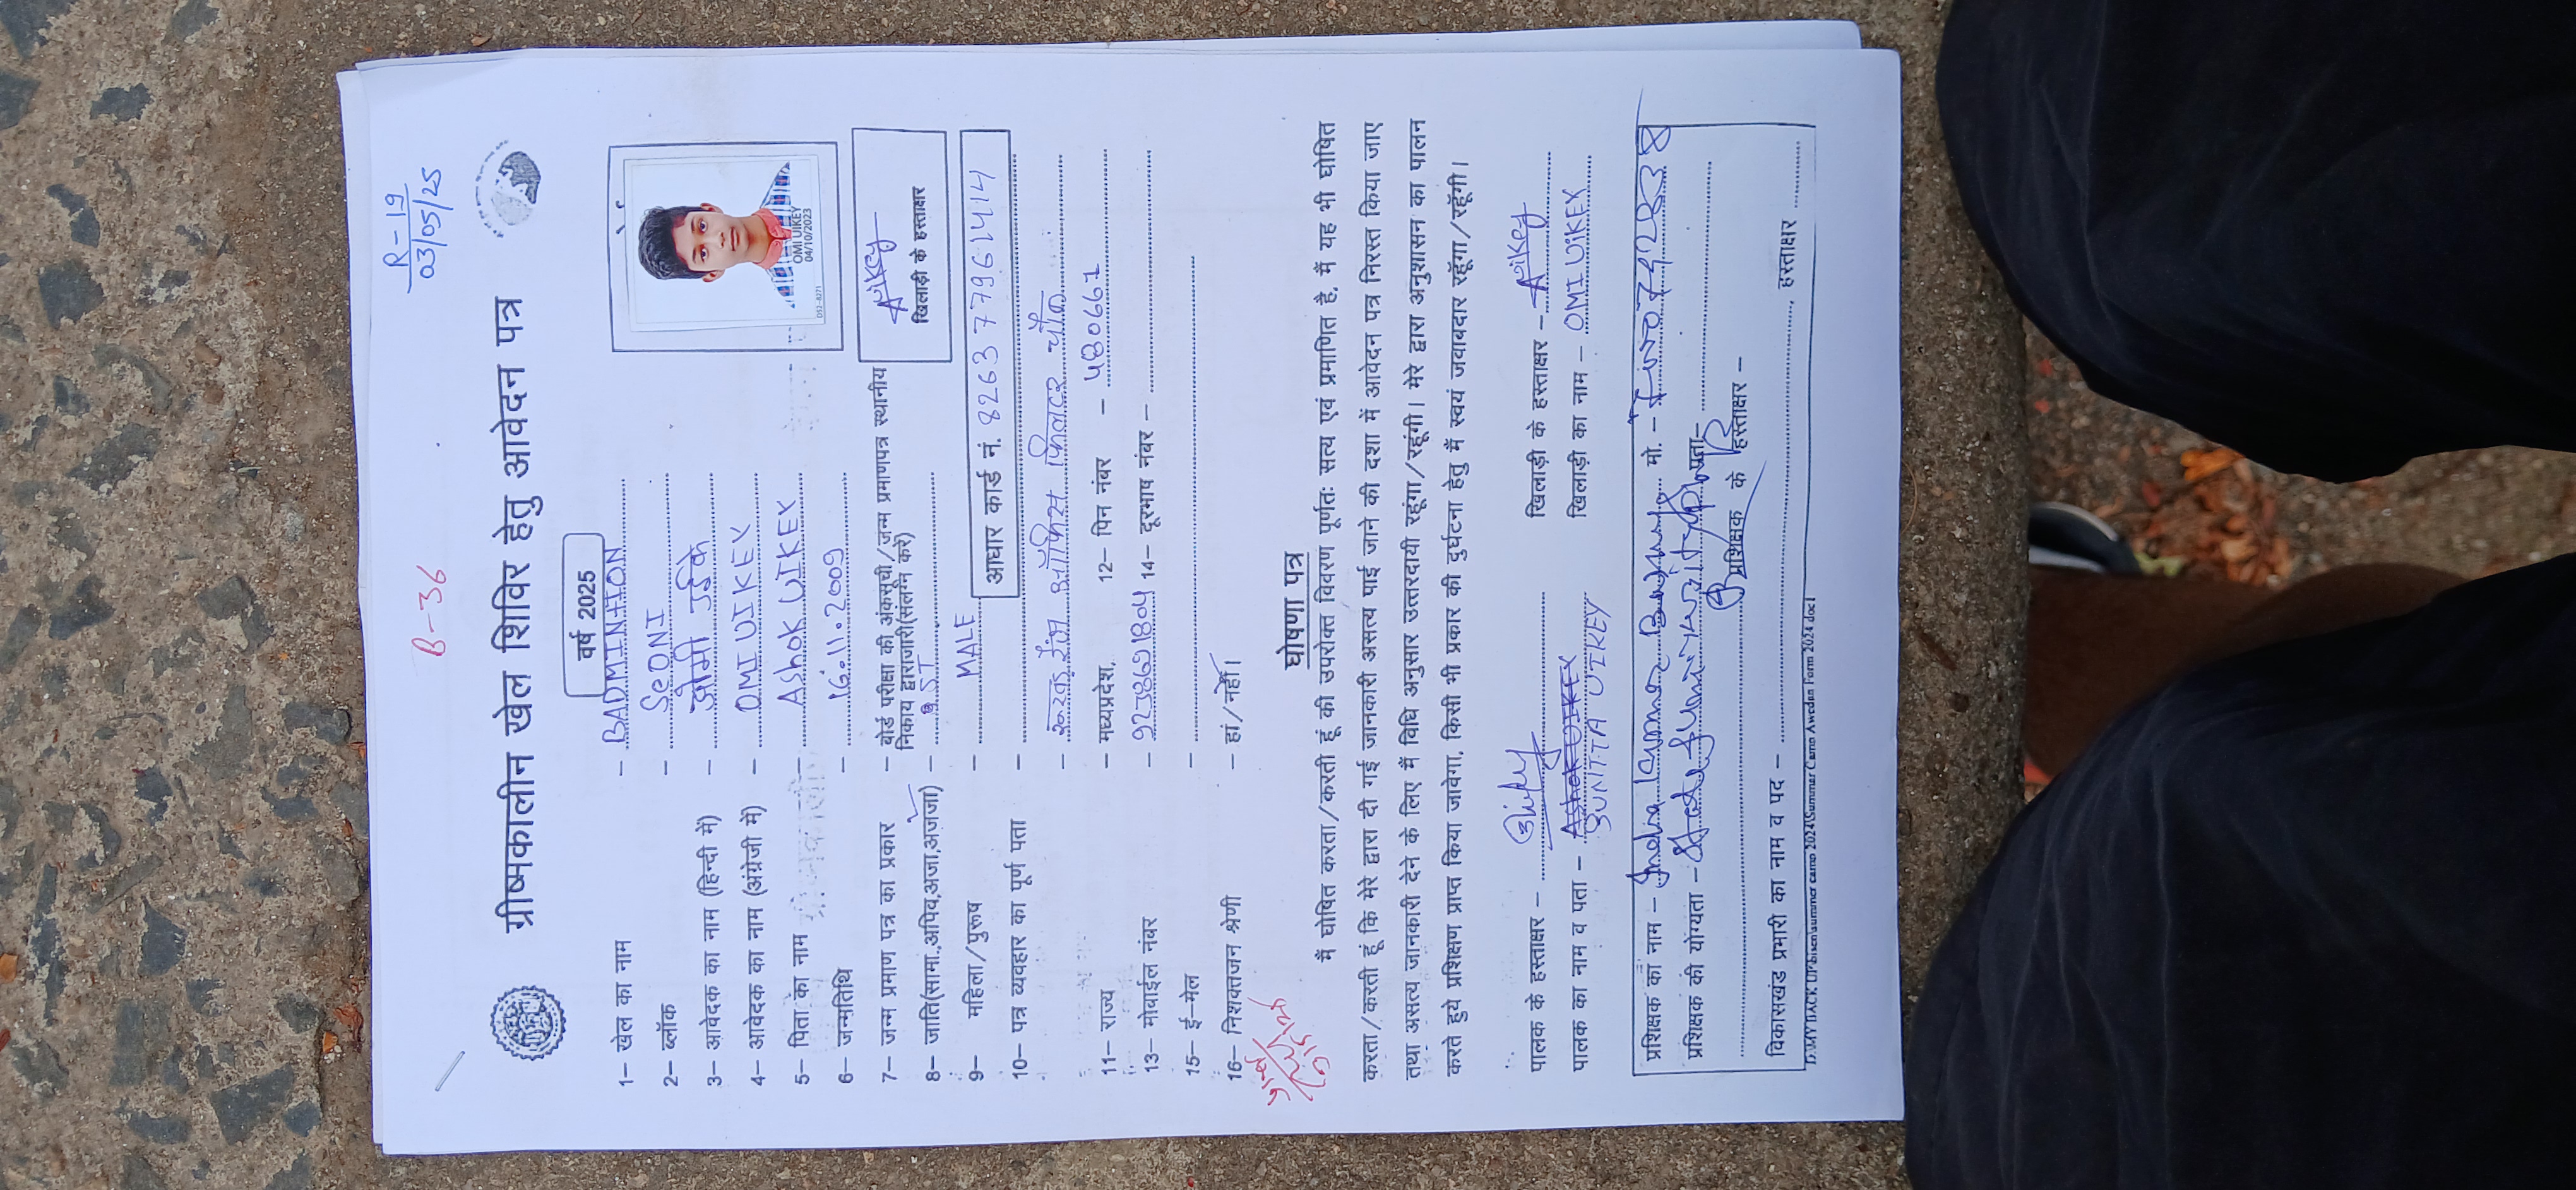 B-36
R-19
03/05/25
ग्रीष्मकालीन खेल शिविर हेतु आवेदन पत्र
वर्ष 2025
1– खेल का नाम – BADMINTION
2– ब्लॉक – SeONI
3– आवेदक का नाम (हिन्दी में) – ओमी उईके
4– आवेदक का नाम (अंग्रेजी में) – OMI UIKEY
5– पिता का नाम – AShOK UIKEY
6– जन्मतिथि – 16.11.2009
OMI UIKEY
04/10/2023
7– जन्म प्रमाण पत्र का प्रकार – बोर्ड परीक्षा की अंकसूची/जन्म प्रमाणपत्र स्थानीय
निकाय द्वाराजारी(संलग्नि करें)
8– जाति(सामा.,अपिव,अजा,अजजा) – ST
खिलाड़ी के हस्ताक्षर
9– महिला/पुरूष – MALE
आधार कार्ड नं. 8263 7796 1414
10– पत्र व्यवहार का पूर्ण पता –
– रूखड़ रेंज ऑफिस फिल्टर चौक
11– राज्य – मध्यप्रदेश, 12– पिन नंबर – 480661
13– मोबाईल नंबर – 14– दूरभाष नंबर –
15– ई–मेल –
16– निशक्तजन श्रेणी – हां/नहीं।
घोषणा पत्र
मैं घोषित करता/करती हूं की उपरोक्त विवरण पूर्णतः सत्य एवं प्रमाणित है, मैं यह भी घोषित
करता/करती हूं कि मेरे द्वारा दी गई जानकारी असत्य पाई जाने की दशा में आवेदन पत्र निरस्त किया जाए
तथा असत्य जानकारी देने के लिए मैं विधि अनुसार उत्तरदायी रहूंगा/रहूंगी। मेरे द्वारा अनुशासन का पालन
करते हुये प्रशिक्षण प्राप्त किया जावेगा, किसी भी प्रकार की दुर्घटना हेतु मैं स्वयं जवाबदार रहूँगा/रहूँगी।
पालक के हस्ताक्षर – खिलाड़ी के हस्ताक्षर –
पालक का नाम व पता – AShOK UIKEY खिलाड़ी का नाम – OMI UIKEY
SUNITA UIKEY
प्रशिक्षक का नाम – मो. –
प्रशिक्षक की योग्यता –
प्रशिक्षक के हस्ताक्षर –
विकासखंड प्रभारी का नाम व पद – , हस्ताक्षर